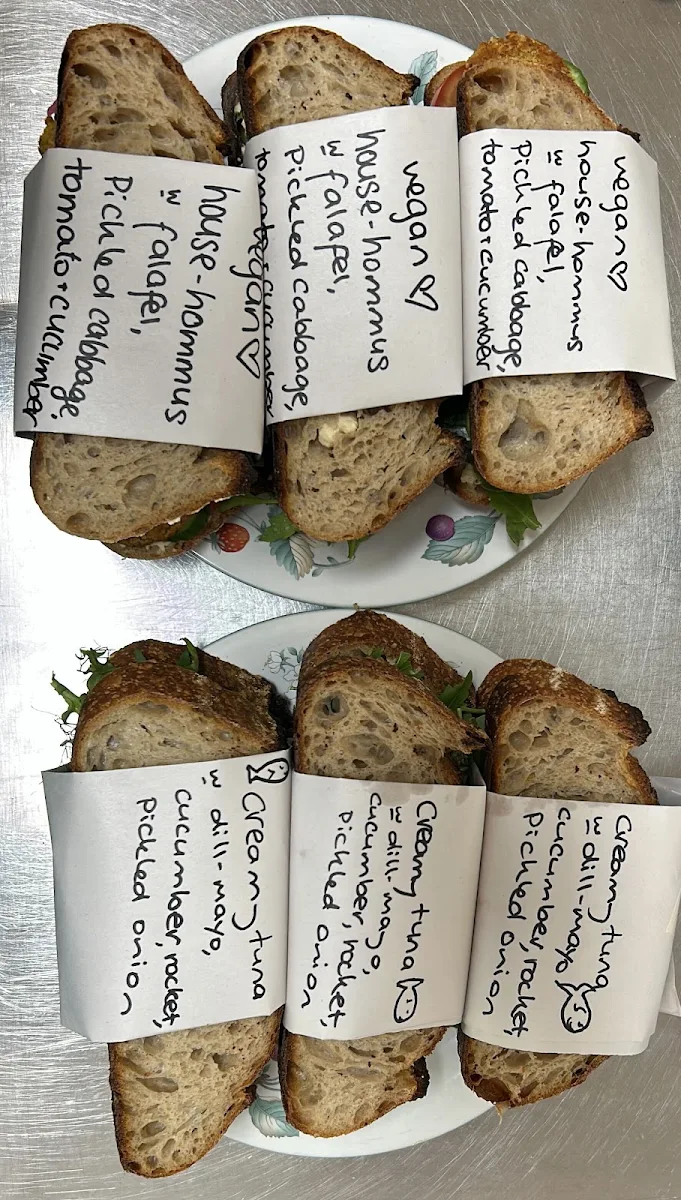 vegan♡
house-hommus
w falafel,
Pickled cabbage,
tomato + cucumber
vegan♡
house-hommus
w falafel,
Pickled cabbage,
tomato + cucumber
vegan♡
house-hommus
w falafel,
Pickled cabbage,
tomato + cucumber
Creamy tuna
w dill-mayo,
cucumber, rocket,
pickled onion
Creamy tuna
w dill-mayo,
cucumber, rocket,
pickled onion
Creamy tuna
w dill-mayo
cucumber, rocket,
pickled onion